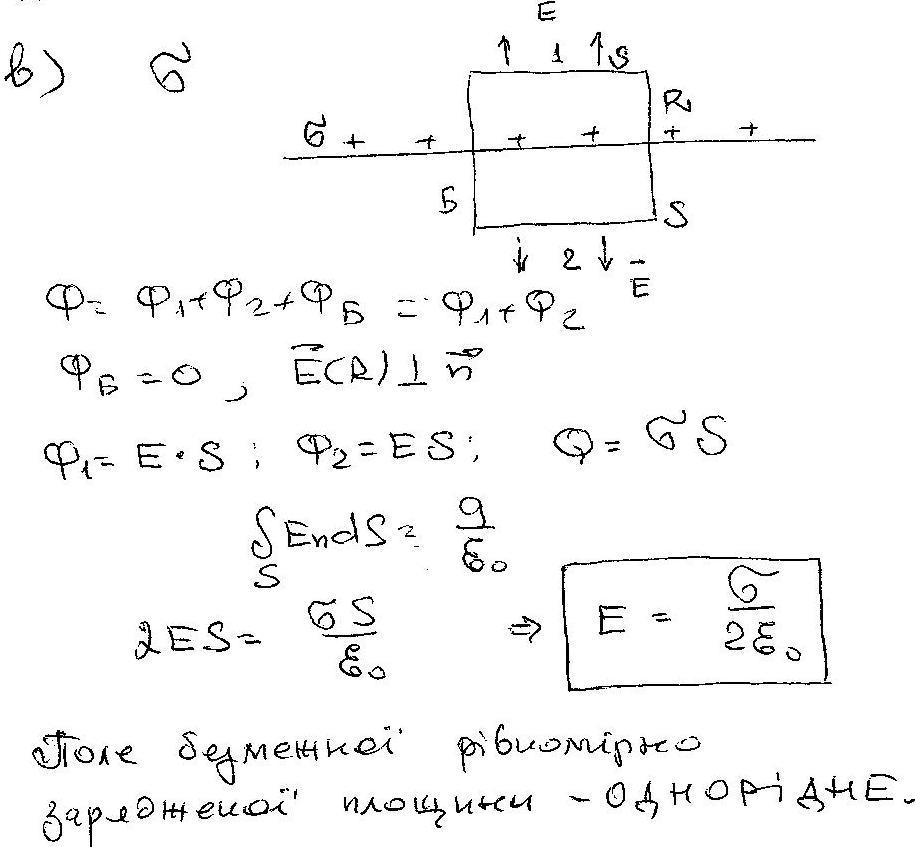 в) σ
E
1 S
σ + + + + + +
R
Б S
2 E
Φ = Φ₁ + Φ₂ + Φ_Б = Φ₁ + Φ₂
Φ_Б = 0 , E⃗(R) ⊥ n⃗
Φ₁ = E · S ; Φ₂ = ES ; Q = σS
∫_S EndS = q/ε₀
2ES = σS/ε₀ ⇒ E = σ/2ε₀
Поле безмежної рівномірно
зарядженої площини – ОДНОРІДНЕ.